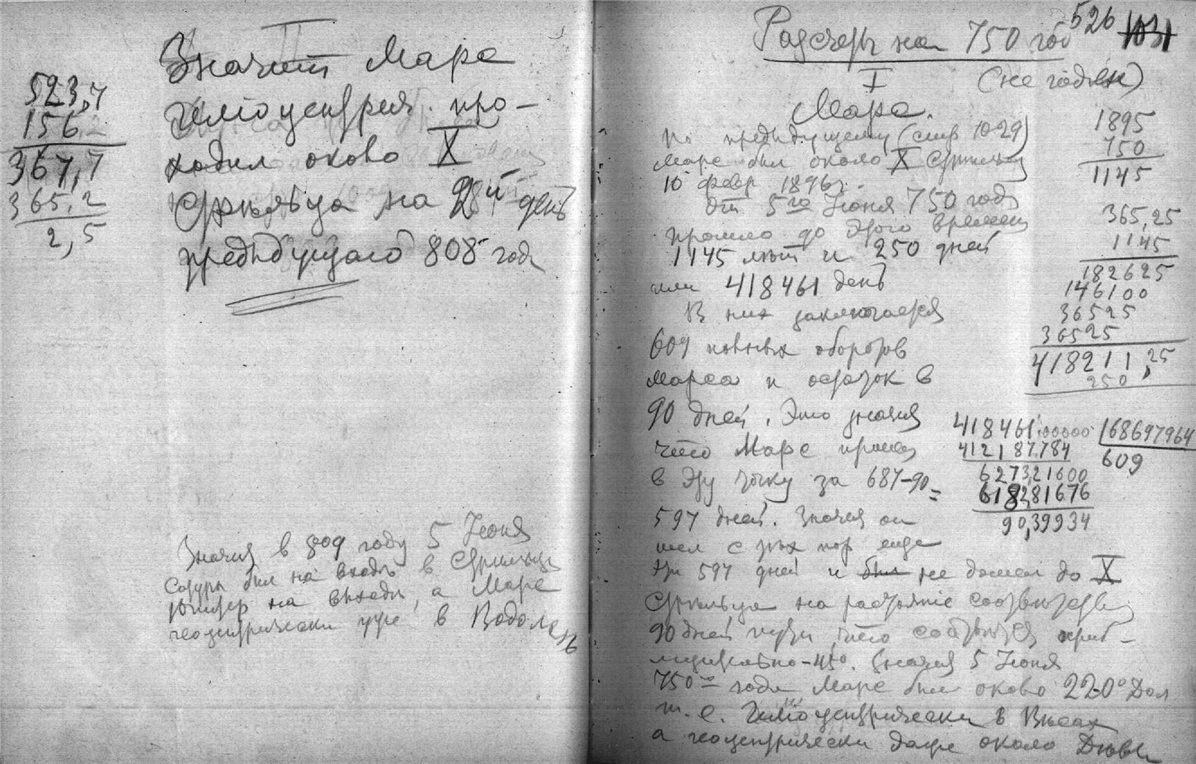 523,7
156,2
367,7
365,2
2,5
Значит Марс
гелиоцентрич. про-
ходил около X
Стрельца на 2й день
предыдущаго 808 года
Значит в 809 году 5 Июня
Сатурн был на входе в Стрельца
Юпитер на выходе, а Марс
геоцентрически уже в Водолее
526
Расчеты на 750 год
(не годен)
I
Марс.
По предыдущему (стр 1029)
Марс был около X Стрельца
10 февр 1896 г.
От 5го Июня 750 года
прошло до этого времени
1145 лет и 250 дней
или 418461 день
В них заключается
609 полных оборотов
Марса и остаток в
90 дней. Это значит
что Марс прошел
в эту точку за 687-90=
597 дней. Значит он
шел с тех пор еще
597 дней и не дошел до X
Стрельца на разстояние соответств
90 дней пути, что составляет приб-
лизительно 45°. Значит 5 Июня
750го года Марс был около 220° Дол
т. е. Гелиоцентрически в Весах
а геоцентрически даже около Девы
1895
750
1145
365,25
1145
182625
146100
36525
36525
418211,25
250
418461,00000 | 68697964
412187,784
609
627321600
618281676
90,39934